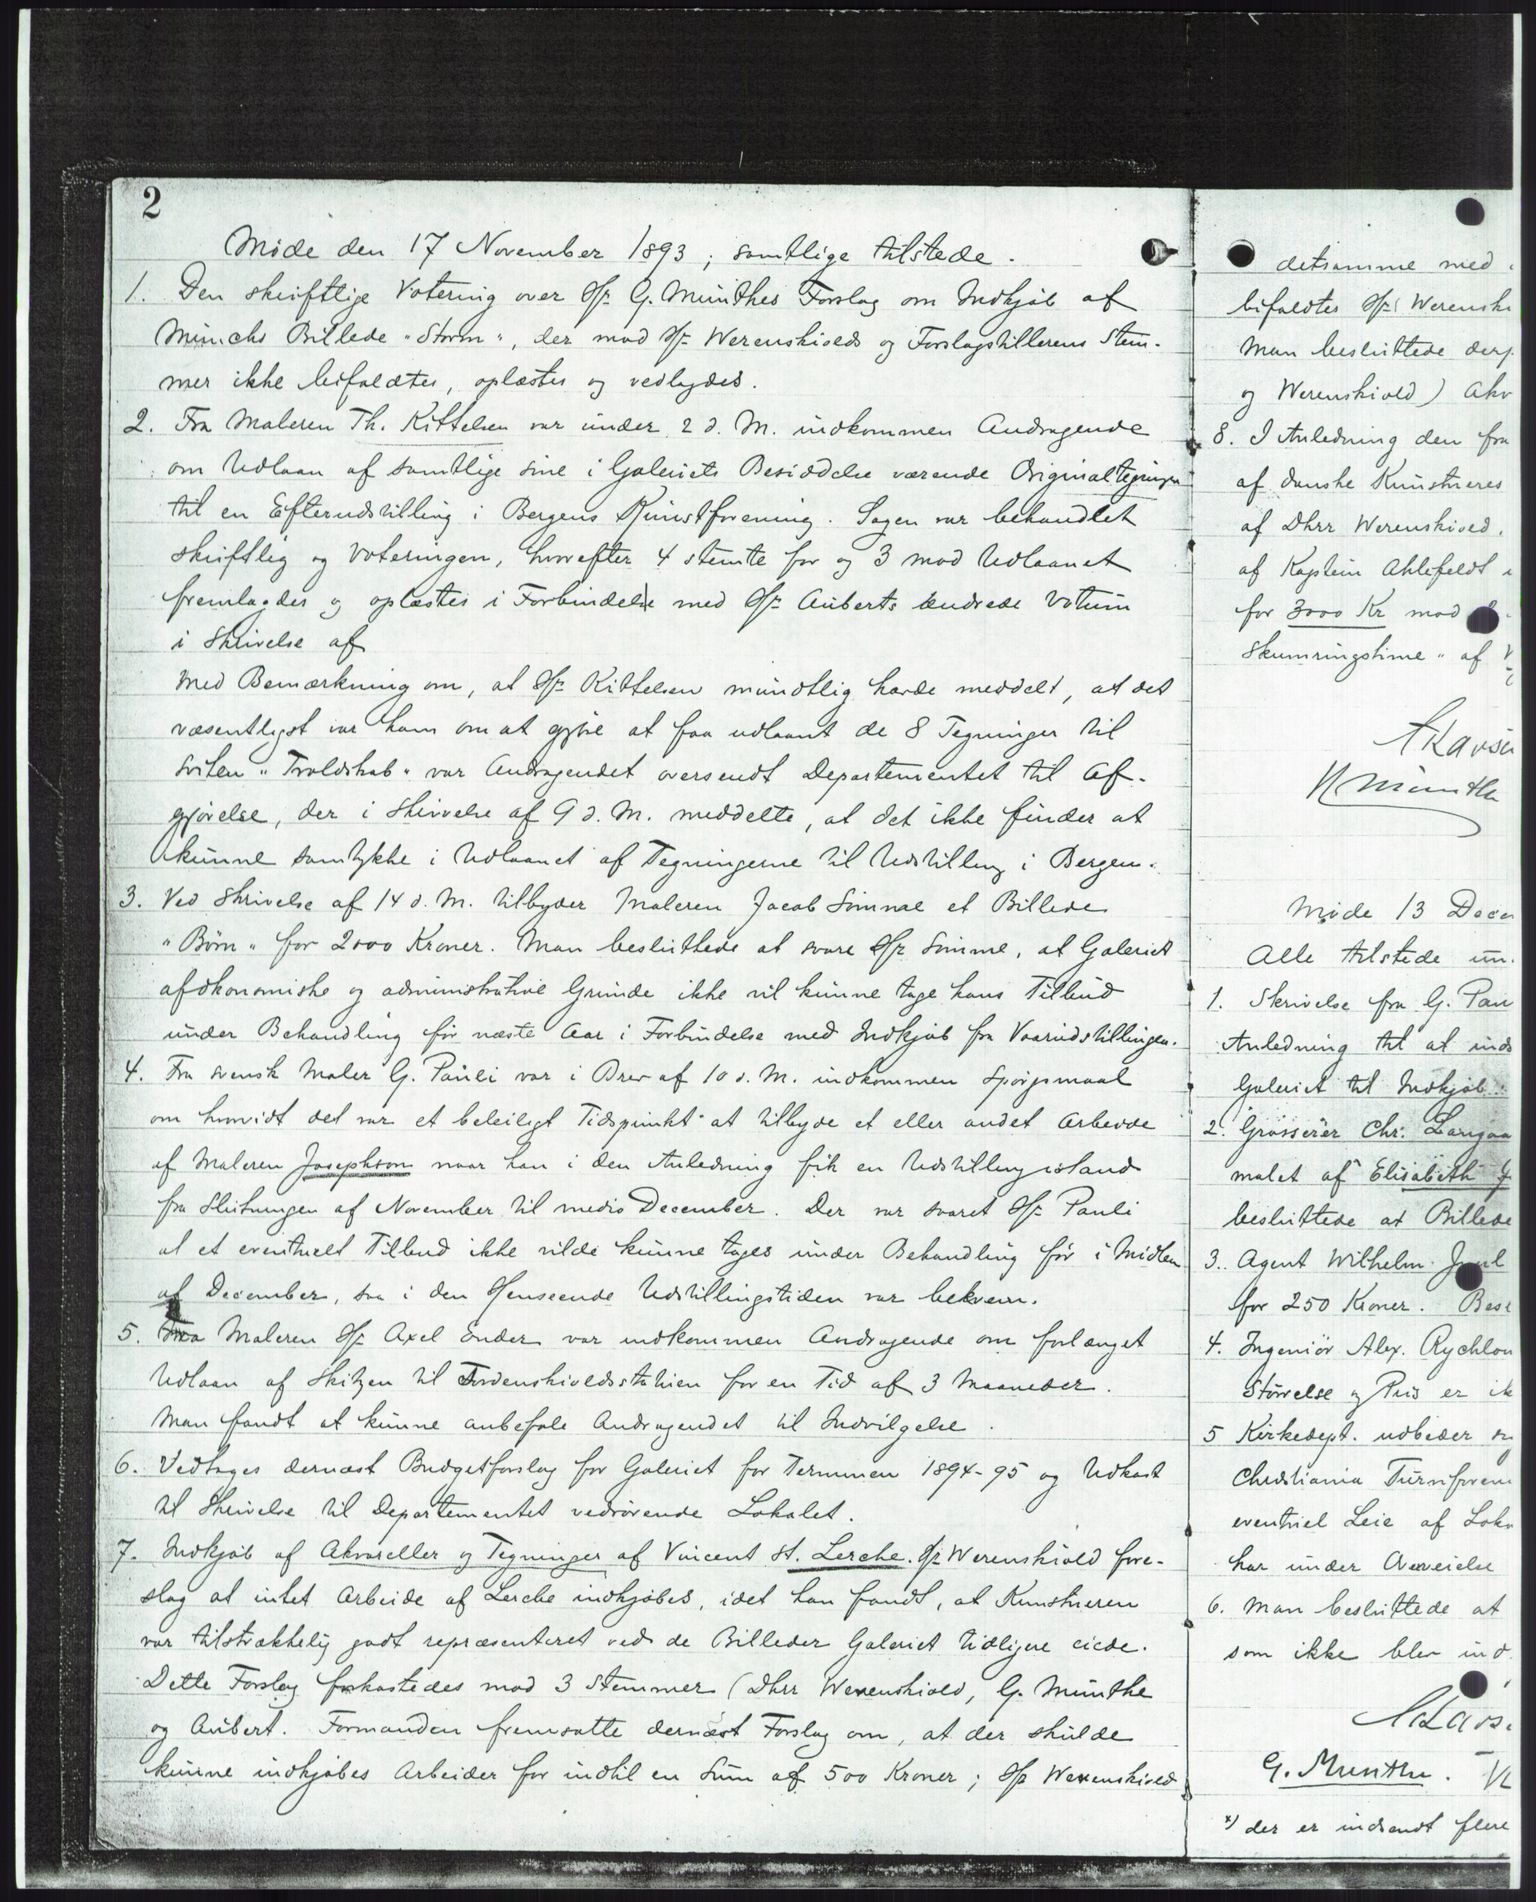 2
Møde den 17 November 1893; samtlige tilstede.
1. Den skriftlige Votering over Hr. G. Munthes Forslag om Indkjøb af
Munchs Billede "Storm", der mod Hr. Werenskiolds og Forslagstillerens Stem-
mer ikke bifaldtes, oplæstes og vedlagdes.
2. Fra Maleren Th. Kittelsen var under 2 d. M. indkommen Andragende
om Udlaan af samtlige sine i Galeriets Besiddelse værende Originaltegninger
til en Efterudstilling i Bergens Kunstforening. Sagen var behandlet
skriftlig og Voteringen, hvorefter 4 stemte for og 3 mod Udlaanet
fremlagdes og oplæstes i Forbindelse med Hr. Auberts ændrede Votum
i Skrivelse af
Med Bemærkning om, at Hr. Kittelsen mundtlig havde meddelt, at det
væsentligst var ham om at gjøre at faa udlaant de 8 Tegninger til
Suiten "Troldskab" var Andragendet oversendt Departementet til Af-
gjørelse, der i Skrivelse af 9 d. M. meddelte, at det ikke finder at
kunne samtykke i Udlaanet af Tegningerne til Udstilling i Bergen.
3. Ved Skrivelse af 14 d. M. tilbyder Maleren Jacob Sømme et Billede
"Børn" for 2000 Kroner. Man besluttede at svare Hr. Sømme, at Galeriet
af økonomiske og administrative Grunde ikke vil kunne tage hans Tilbud
under Behandling før næste Aar i Forbindelse med Indkjøb fra Vaarudstillingen.
4. Fra svensk Maler G. Pauli var i Brev af 10 d. M. indkommen Spørgsmaal
om hvorvidt det var et beleiligt Tidspunkt at tilbyde et eller andet Arbeide
af Maleren Josephson naar han i den Anledning fik en Udstilling istand
fra Slutningen af November til medio December. Der var svaret Hr. Pauli
at et eventuelt Tilbud ikke vilde kunne tages under Behandling før i Midten
af December, saa i den Henseende Udstillingstiden var bekvem.
5. Fra Maleren Hr. Axel Ender var indkommen Andragende om forlænget
Udlaan af Skitzen til Tordenskioldsstatuen for en Tid af 3 Maaneder.
Man fandt at kunne anbefale Andragendet til Indvilgelse.
6. Vedtoges dernæst Budgetforslag for Galeriet for Terminen 1894-95 og Udkast
til Skrivelse til Departementet vedrørende Lokalet.
7. Indkjøb af Akvareller og Tegninger af Vincent St. Lerche. Hr. Werenskiold fore-
slog at intet Arbeide af Lerche indkjøbes, idet han fandt, at Kunstneren
var tilstrækkelig godt repræsenteret ved de Billeder Galeriet tidligere eiede.
Dette Forslag forkastedes mod 3 Stemmer (Dhrr Werenskiold, G. Munthe
og Aubert. Formanden fremsatte dernæst Forslag om, at der skulde
kunne indkjøbes Arbeider for indtil en Sum af 500 Kroner; Hr. Werenskiold
detsamme med
bifaldtes Hr. Werensk
Man besluttede
og Werenskiold)
8. I Anledning den fra
af danske Kunstneres
af Dhrr Werenskiold.
af Kaptein Ahlefeldt
for 3000 Kr mod
Skumringstime" af

Møde 13 Decem
Alle tilstede
1. Skrivelse fra G. Pau
Anledning til at inds
Galeriet til Indkjøb
2. Grosserer Chr. Langaa
malet af Elisabeth
besluttede at Billede
3. Agent Wilhelm
for 250 Kroner.
4. Ingeniør Alex. Rychlou
Størrelse og Pris er ik
5 Kirkedept. udbeder
Christiania Turnforen
eventuel Leie af Loka
har under Overveielse
6. Man besluttede at
som ikke blev ind
G. Munthe.
x) der er indsendt flere